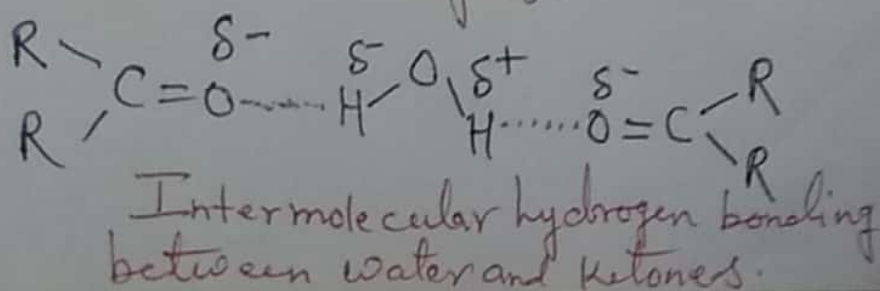 R δ- δ- O δ+ δ- R
C=O------H H......O=C
R R
Intermolecular hydrogen bonding
between water and Ketones.